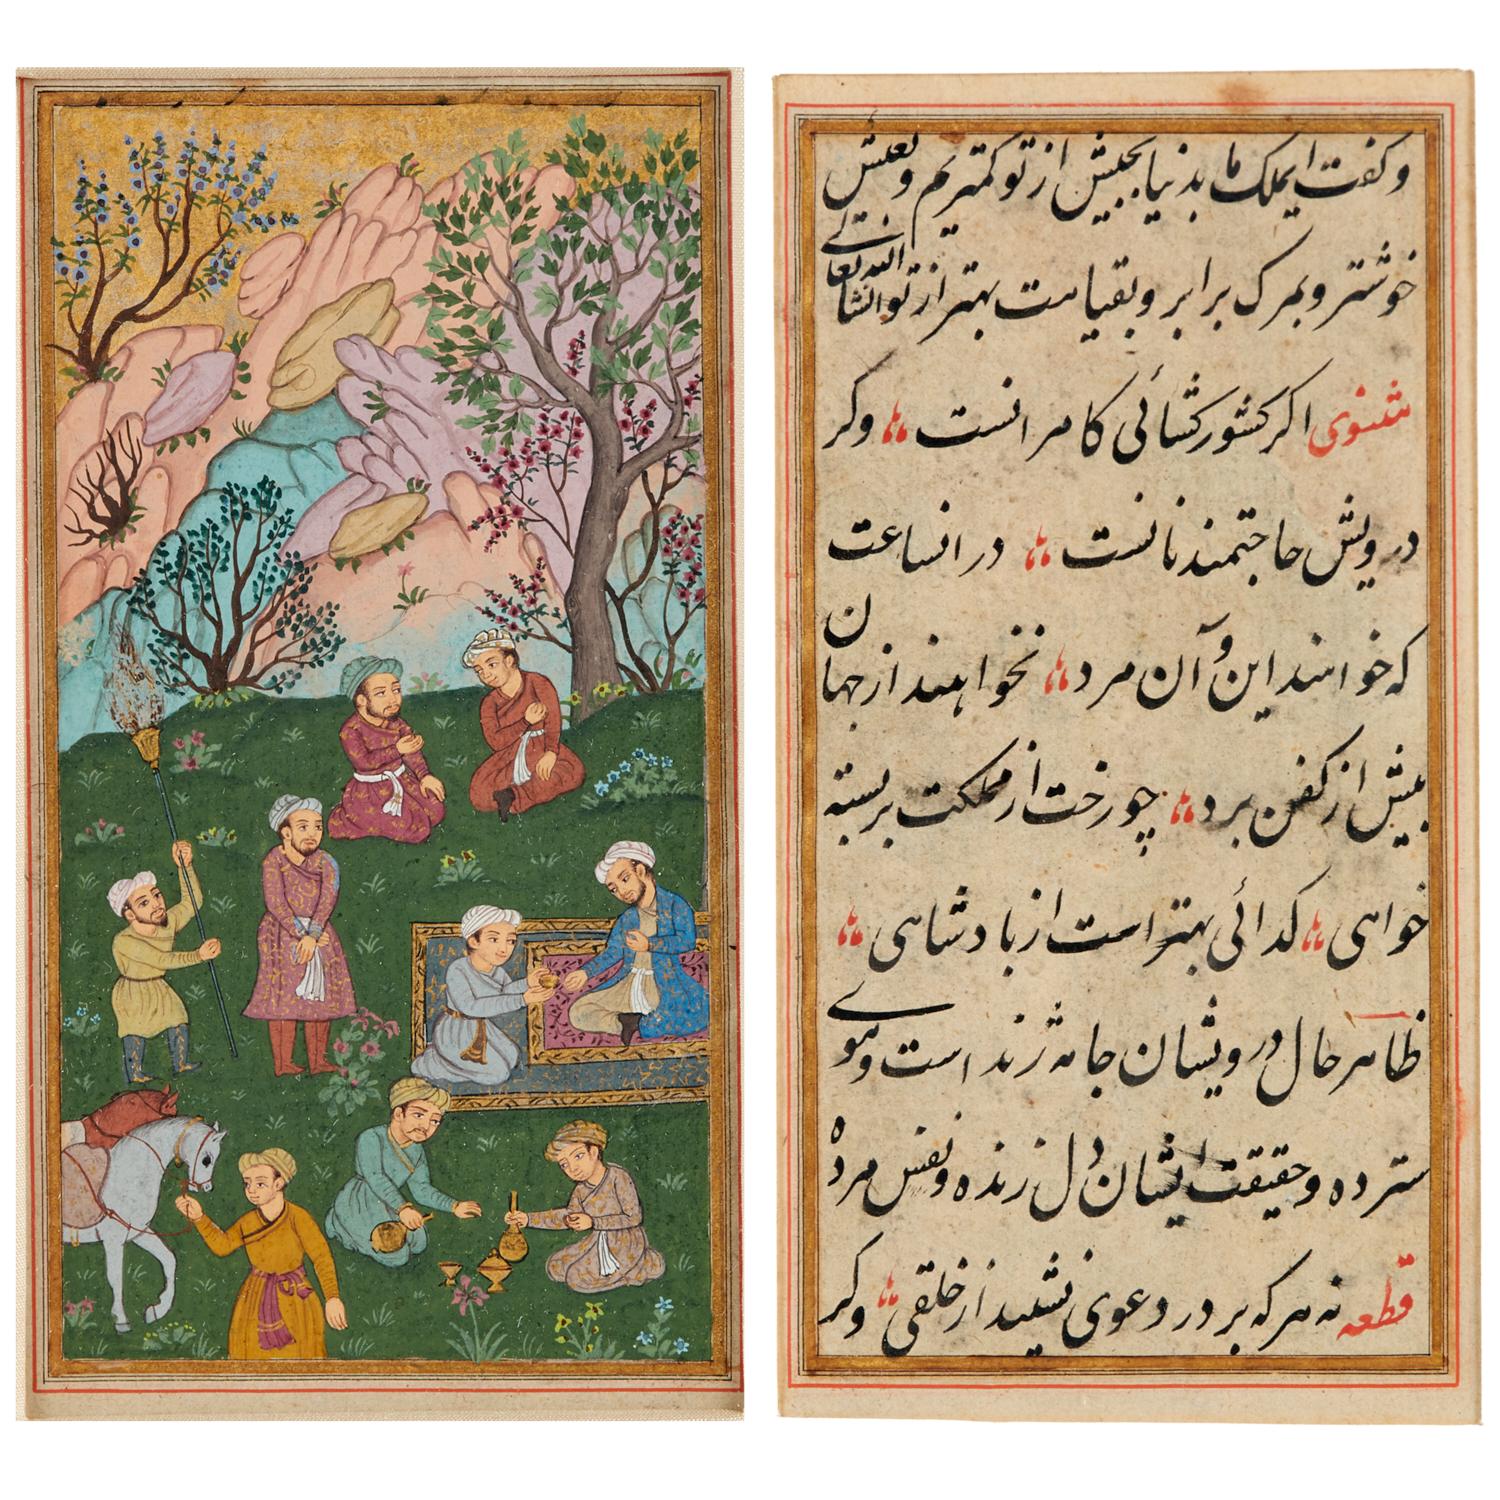 و کفت ایملک ما بدنیا بجیش از تو کمتریم و بعیش
خوشتر و بمرک برابر و بقیامت بهتر از تو انشا الله تعالی
مثنوی اکر کشور کشائی کامرانست وکر
درویش حاجتمند نانست در انساعت
که خواهند این و آن مرد نخواهند از جهان
بیش از کفن برد چو رخت از مملکت بربسته
خواهی کدائی بهتر است از پادشاهی
ظاهر حال درویشان جامه ژنده است و موی
سترده و حقیقت ایشان دل زنده و نفس مرده
قطعه نه هر که بر در دعوی نشیند از خلقی وکر